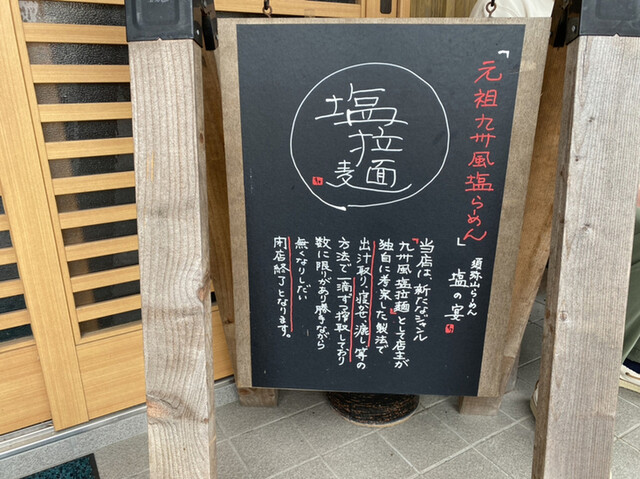 「元祖九州風塩らーめん」
須弥山らーめん
塩の宴
塩拉麺
当店は、新たなジャンル
「九州風塩拉麺」として店主が
独自に考案した製法で
出汁取り、寝かせ、漉し等の
方法で一滴ずつ搾取しており
数に限りがあり勝手ながら
無くなりしだい
閉店終了となります。